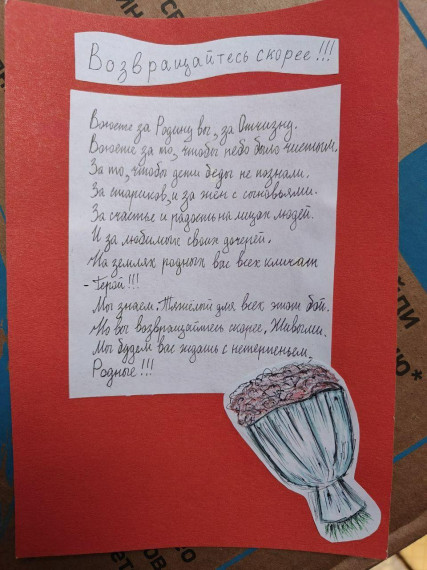 Возвращайтесь скорее!!!
Воюете за Родину вы, за Отчизну.
Воюете за то, чтобы небо было чистым.
За то, чтобы дети беды не познали.
За стариков, и за жён с сыновьями.
За счастье и радость на лицах людей.
И за любимых своих дочерей.
На землях родных вас всех кличат
- Герой!!!
Мы знаем. Тяжёлый для всех этот бой.
Но вы возвращайтесь скорее. Живыми.
Мы будем вас ждать с нетерпеньем.
Родные!!!